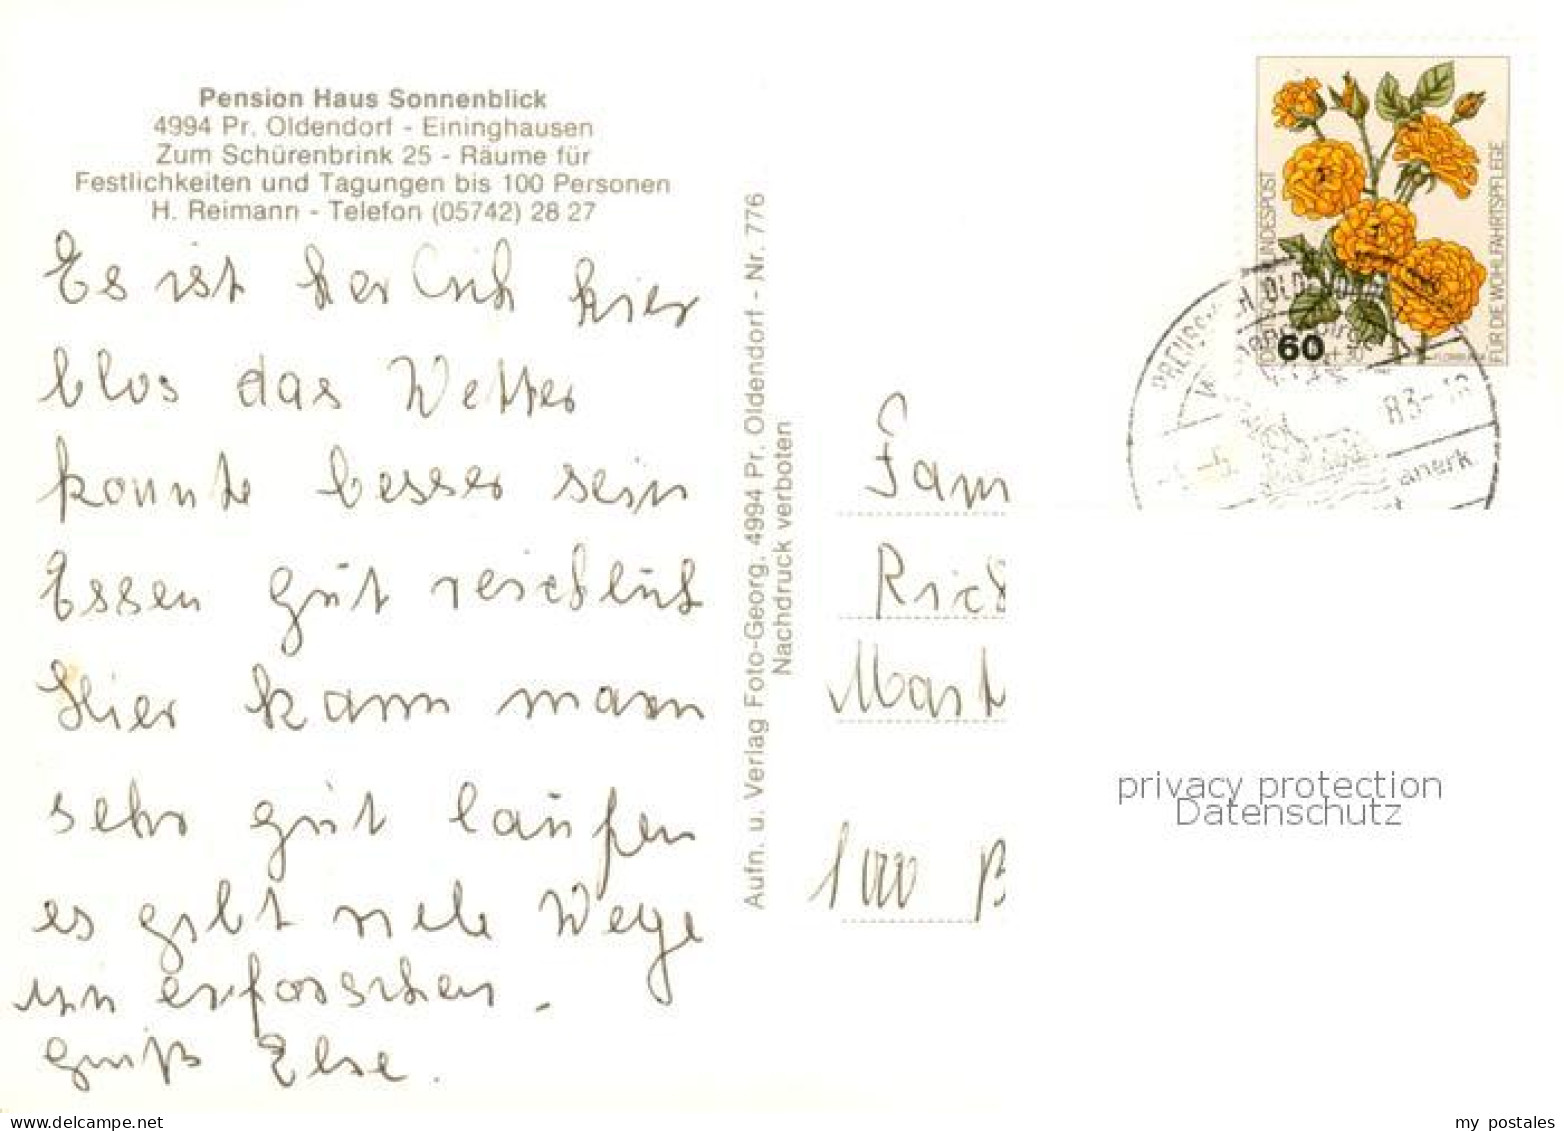 Pension Haus Sonnenblick
4994 Pr. Oldendorf - Eininghausen
Zum Schürenbrink 25 - Räume für
Festlichkeiten und Tagungen bis 100 Personen
H. Reimann - Telefon (05742) 28 27
Es ist herlich hier
blos das Wetter
konnte besser sein
Essen gut reichlich
Hier kann man
sehr gut laufen
es gibt viele Wege
um erforschen.
gruß Else.
Aufn. u. Verlag Foto-Georg, 4994 Pr. Oldendorf - Nr. 776
Nachdruck verboten
Fam
Rich
Mart
1000 B
BUNDESPOST
FÜR DIE WOHLFAHRTSPFLEGE
60 +30
OLDENDORF
83-18
anerk
privacy protection
Datenschutz
my postales